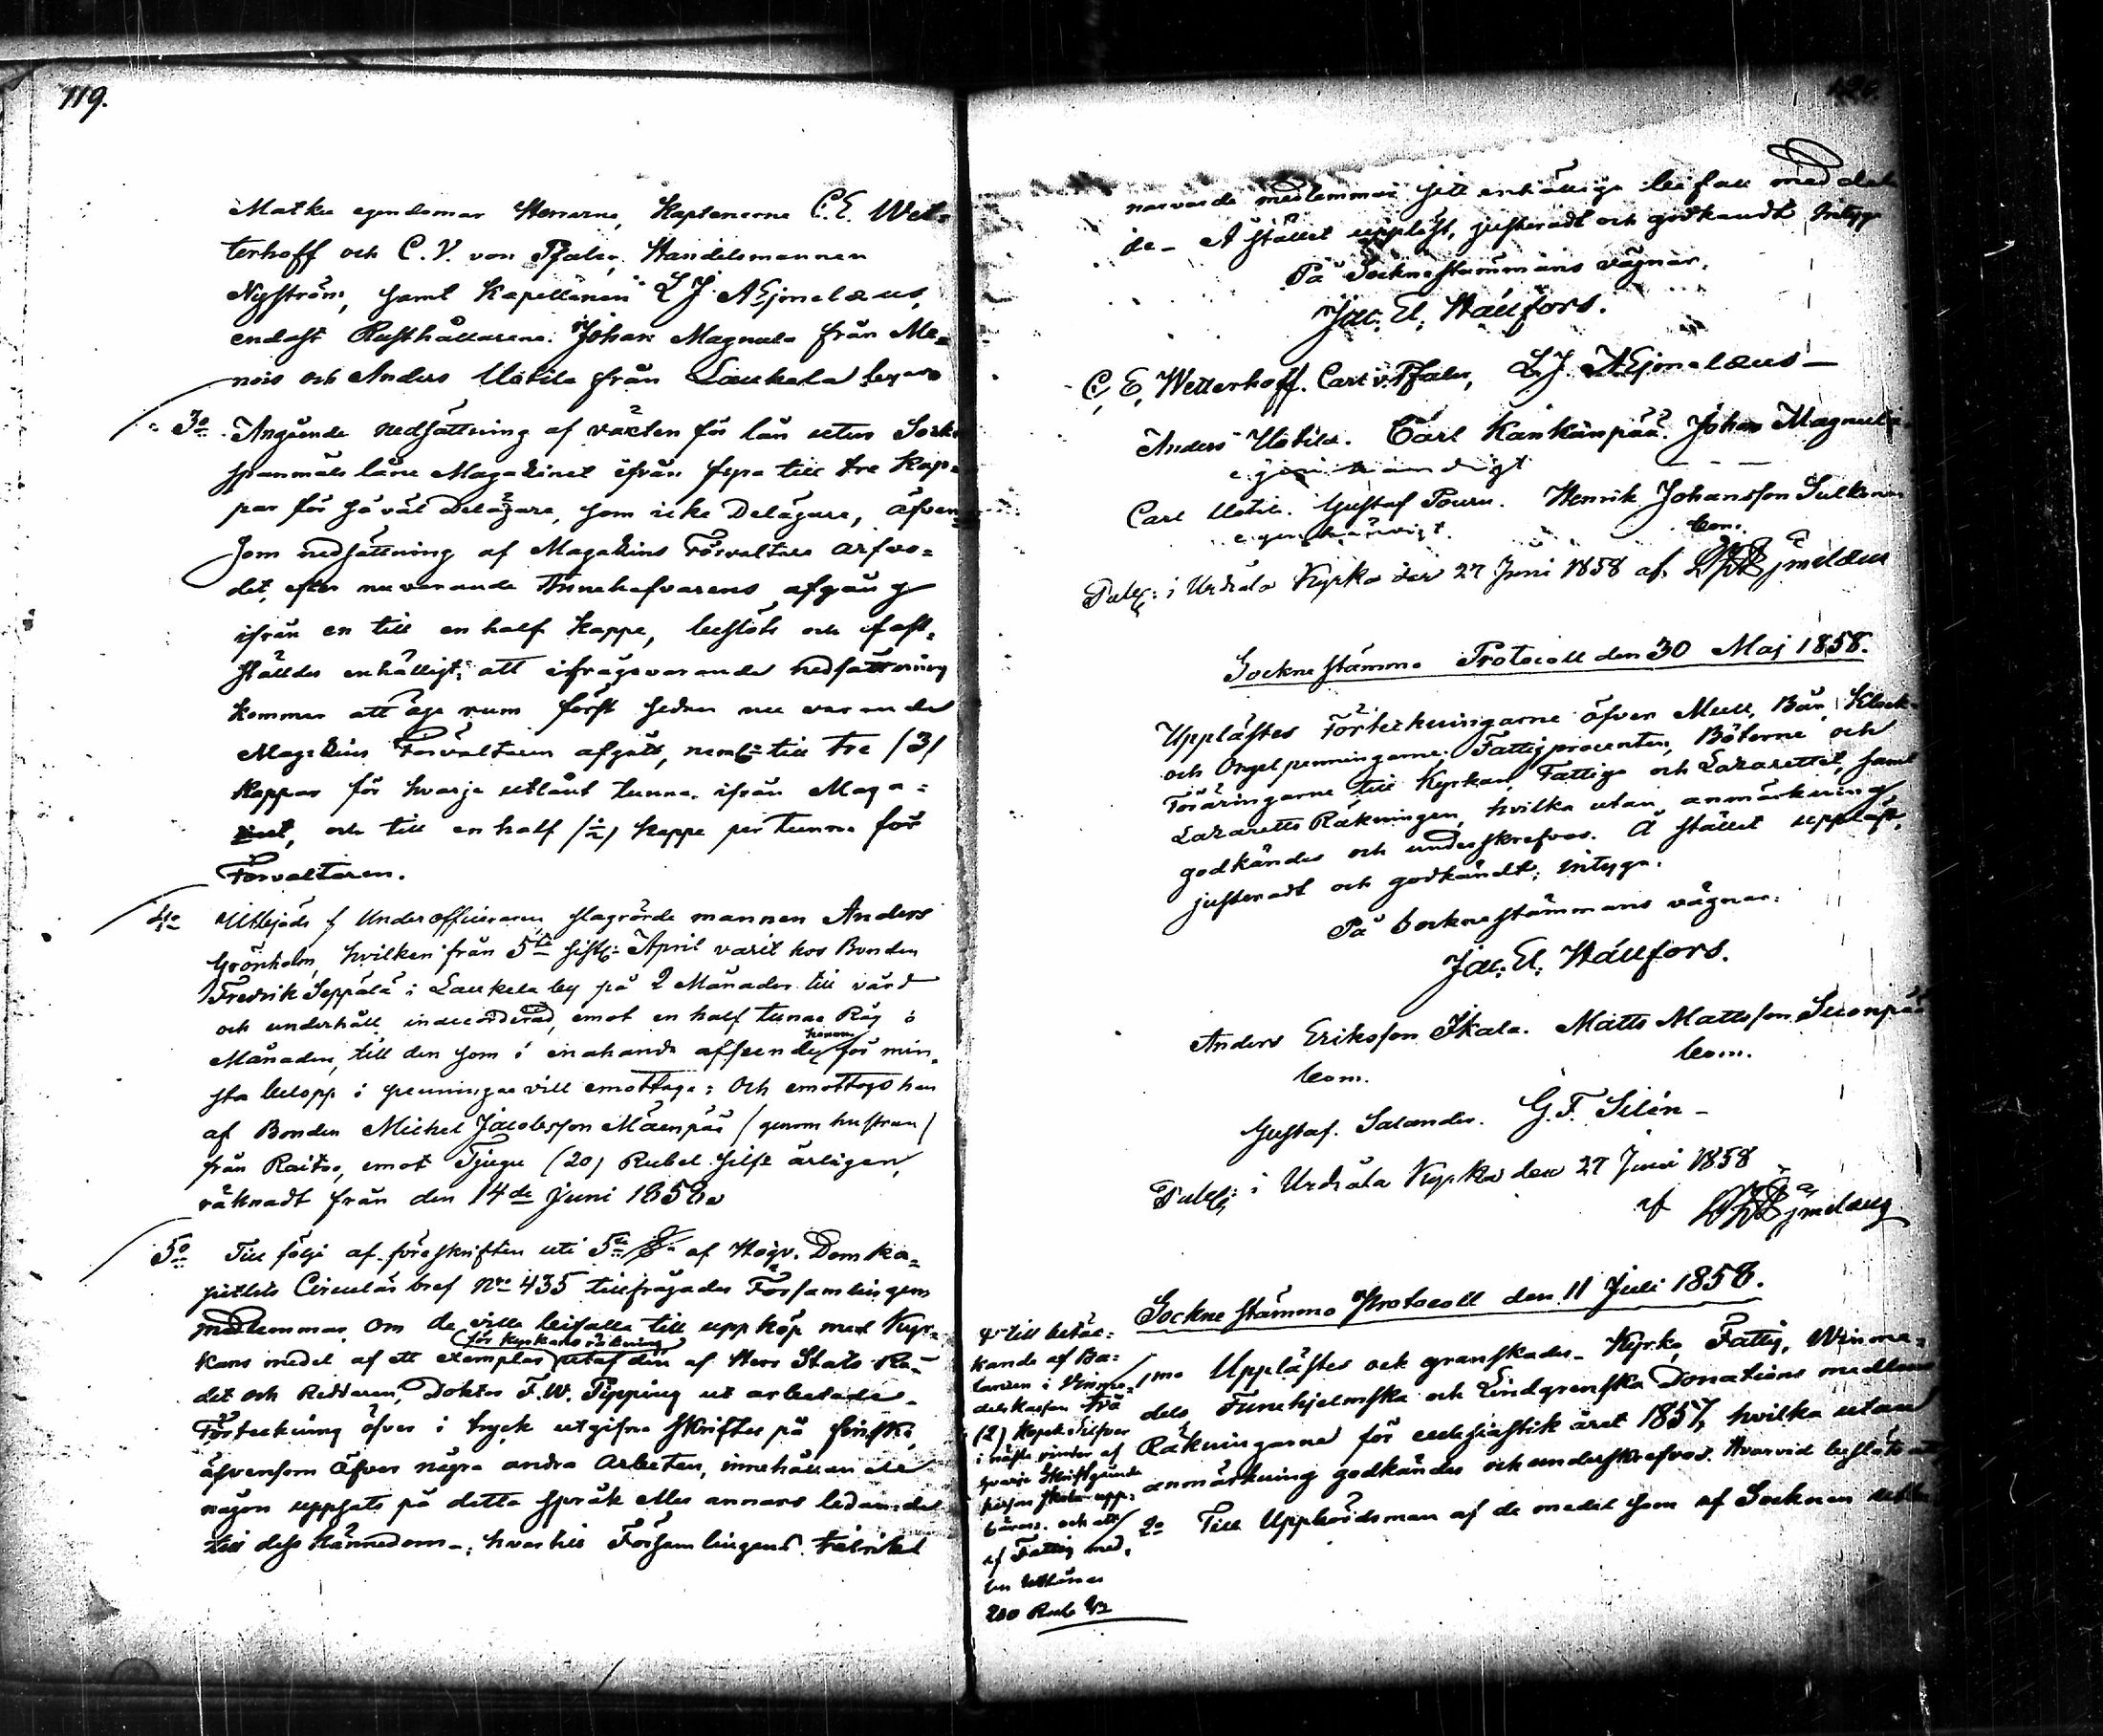 119.
Matku egendomar Herrarne, Kaptenerne C. E. Wet-
terhoff och C. V. von Pfaler, Handelsmannen
Nyström, samt Kapellanen L J AEjmelæus,
endast Rusthållarene: Johan Magnula från Me-
nois och Anders Uotila från Laukela byar
3o Angående nedsättning af växten för lån utur Sockn
spanmåls låne Magazinet ifrån fyra till tre kap-
par för så väl Delägare, som icke Delägare, äfven
som nedsättning af Magazins Förvaltare arfvo-
det, efter nuvarande Innehafvarens afgång
ifrån en till en half kappe, beslöts och fast-
ställdes enhälligt: att ifrågavarande nedsättning
kommer att äga rum först sedan nu varande
Magazins Förvaltaren afgått, neml: till tre (3)
kappar för hvarje utlånt tunna ifrån Maga-
zinet, och till en half (½) kappe per tunna för
Förvaltaren.
4o Utbjöds f Underofficeraren, slagrörde mannen Anders
Grönholm, hvilken från 5te sistl: April varit hos Bonden
Fredrik Seppälä i Laukela by på 2 Månader till vård
och underhåll indeccorderad, emot en half tunna Råg i
Månaden, till den som i enahanda afseende honom för min-
sta belopp i penningar vill emottaga: Och emottogs han
af Bonden Michel Jacobsson Mäenpää (genom hustrun)
från Raitoo, emot Tjugu (20) Rubel Silfr årligen,
räknadt från den 14de Juni 1858.
5o Till följe af föreskriften uti 5te § af Högv. Domka-
pitlets Circulär bref No 435 tillfrågades Församlingens
medlemmar, Om de ville bifalla till uppköp med Kyr-
för kyrkans räkning
kans medel af ett exemplar utaf den af Herr Stats Rå-
det och Riddaren, Doktor F. W. Pipping ut arbetade
Förteckning öfver i tryck utgifna skrifter på finska,
äfvensom öfver några andra arbeten, innehållande
någon uppsats på detta språk eller annars ledande
till dess kännedom; hvartill Församlingens talrikt
närvarande medlemmar sitt enhälliga bifall meddela
de - Å stället uppläst, justeradt och godkändt intyga
På Sockne stämmans vägnar.
Jac. El. Hällfors.
C. E. Wetterhoff. Carl v. Pfaler, L J AEjmelæus
Anders Uotila. Carl Kankänpää. Johan Magnula
egenhändigt
Carl Uotil. Gustaf Pouru. Henrik Johansson Sulkunen
egenhändigt. bom.
Publ: i Urdiala Kyrka den 27 Juni 1858 af. L J AEjmelæus
Sockne stämmo Protocoll den 30 Maj 1858.
Upplästes Förteckningarne öfver Mull, Bår, Klock-
och Orgel penningarne, Fattigprocenten, Böterne och
Föräringarne till Kyrkan, Fattige och Lazarettet, samt
Lazaretts Räkningen, hvilka utan anmärkning
godkändes och underskrefvos. Å stället uppläst,
justeradt och godkändt, intyga.
På Sockne stämmans vägnar.
Jac. El. Hällfors.
Anders Eriksson Ikala. Matts Mattsson Suonpää
bom. bom.
Gustaf. Salander. G. F. Silén
Publ: i Urdiala Kyrka den 27 Juni 1858
af L J AEjmelæus
Sockne stämmo Protocoll den 11 Juli 1858.
1mo Upplästes och granskades Kyrko, Fattig, Winme-
dels, Tunehjelmska och Lindgrenska Donations medlens
Räkningarne för ecclesiastik året 1857, hvilka utan
anmärkning godkändes och underskrefvos. Hvarvid beslöts att
2o Till Uppbördsman af de medel som af Socknen
till betäc-
kande af Ba-
lansen i Vinme-
dels kassan två
(2) kopek Silfver
i nästa vinter af
hvarje Skriftgående
person skola upp-
bäras. och att
af Fattig med-
len utlånas
200 Rub